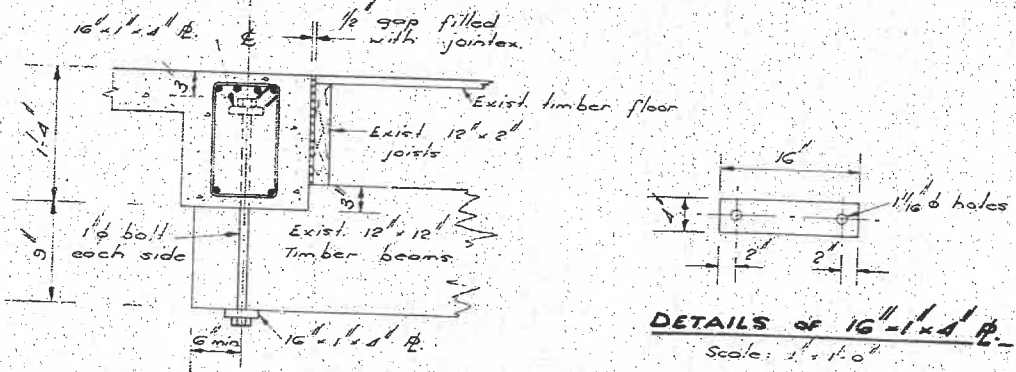 16"x1"x4" PL.
CL
1/2" gap filled
with jointex.
3"
1'-4"
Exist timber floor
Exist 12" x 2"
joists
3"
9"
1"ϕ bolt
each side
Exist. 12" x 12"
Timber beams
6"min
16"x1"x4" PL.
16"
4"
1 1/16"ϕ holes
2"
2"
DETAILS OF 16"x1"x4" PL.
Scale: 1" = 1'-0"